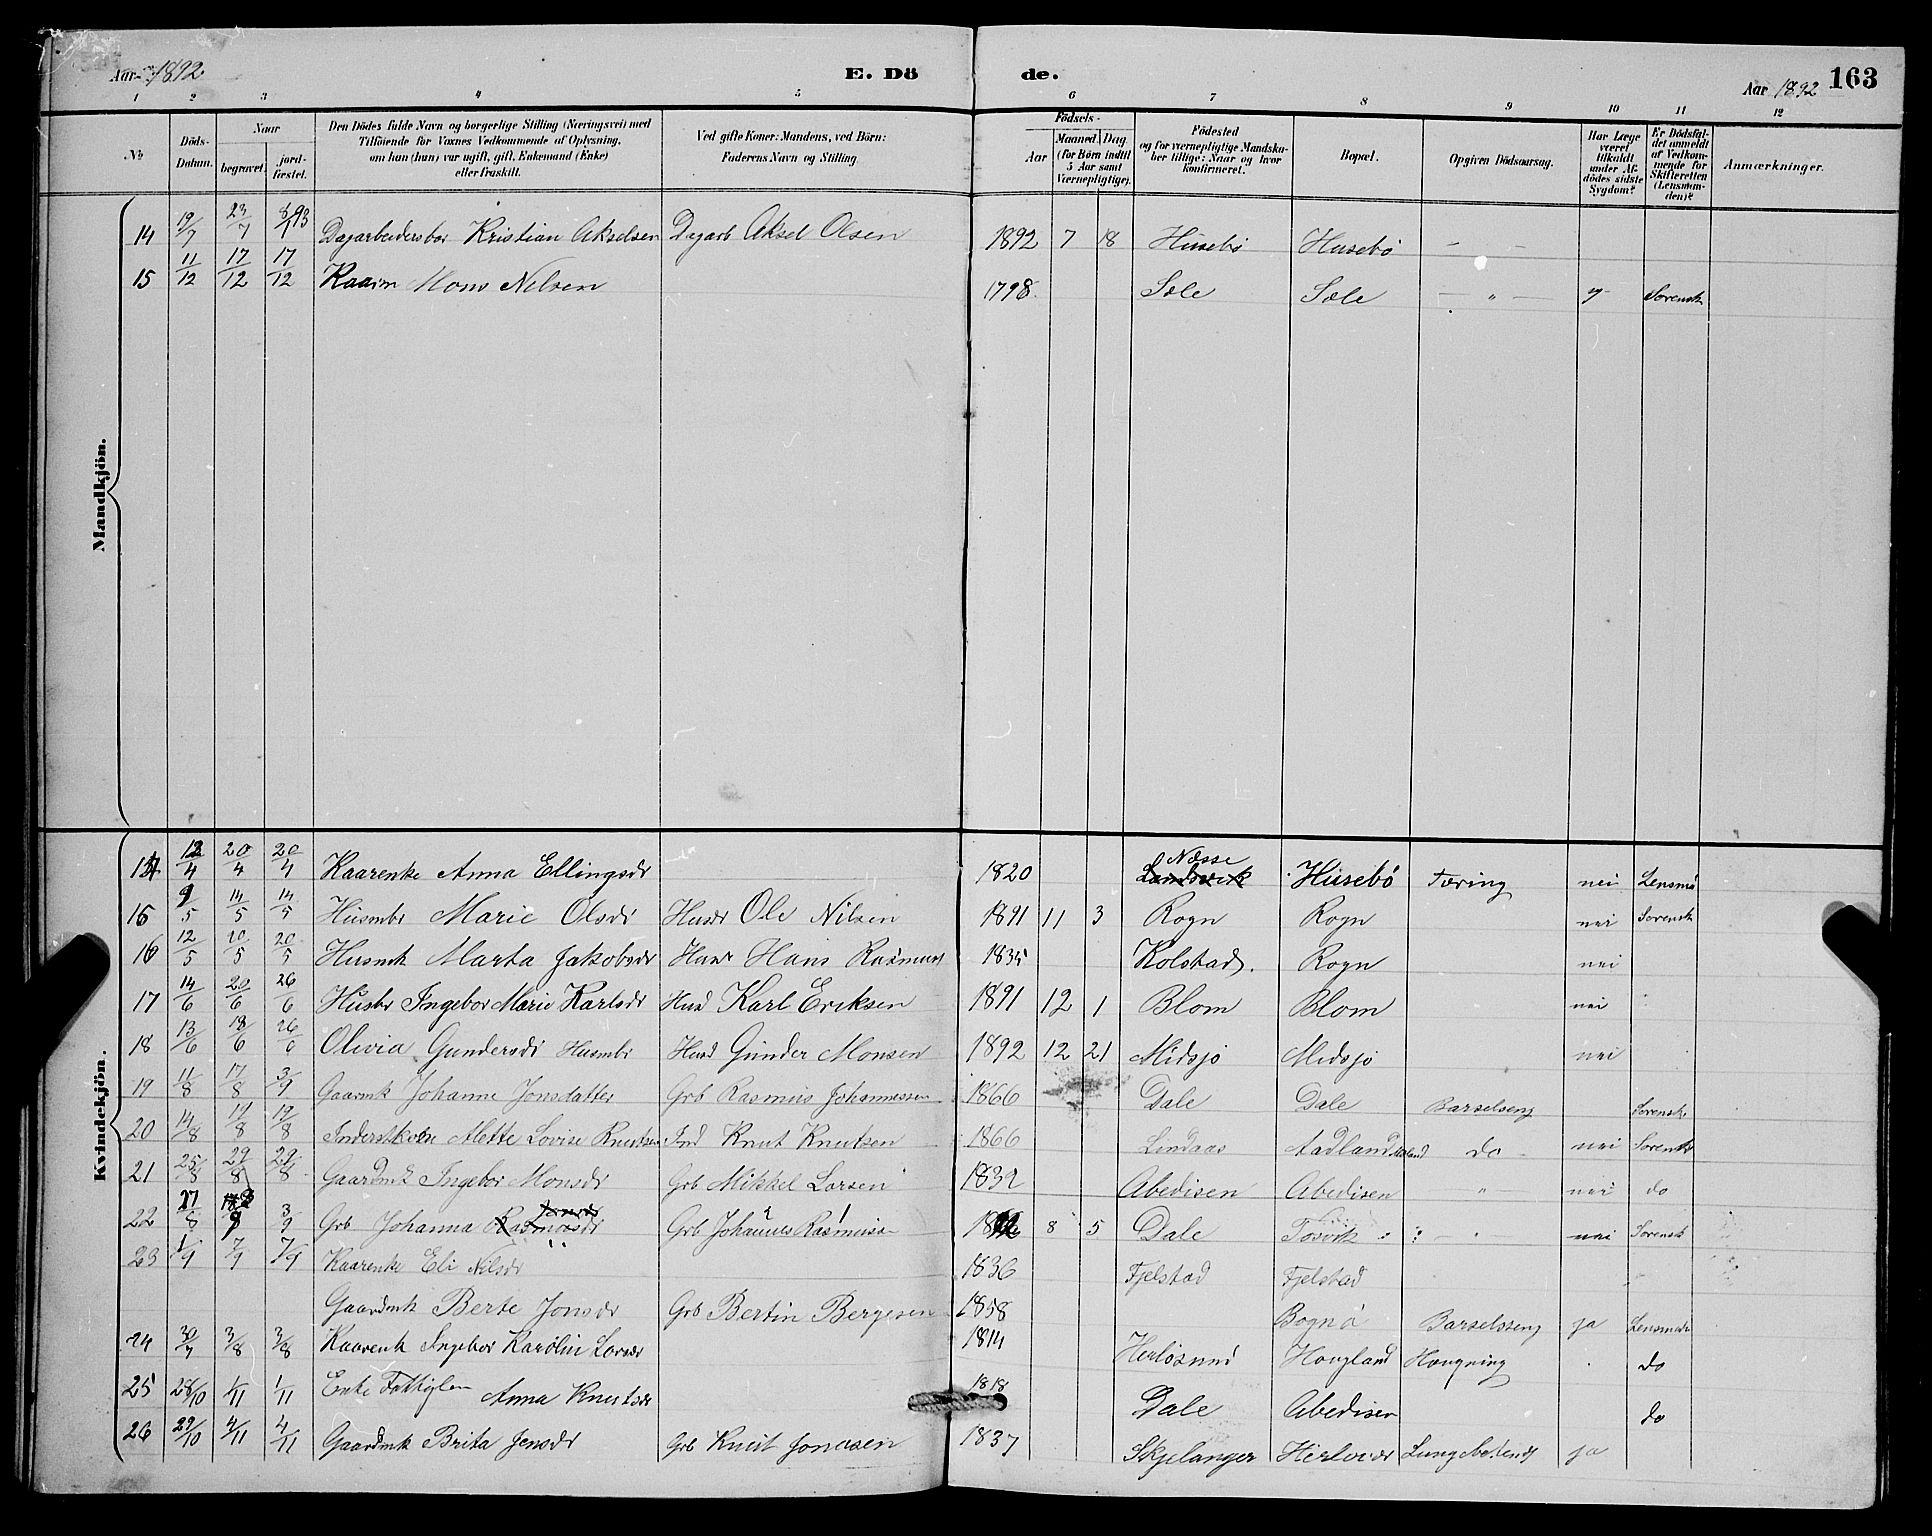 Aar 1892.
E. Dö de.
Aar 1892 163
1 2 3 4 5 6 7 8 9 10 11 12
No
Döds-Datum.
Naar
begravet.
jord-fæstet.
Den Dödes fulde Navn og borgerlige Stilling (Næringsvei) med Tilföiende for Voxnes Vedkommende af Oplysning, om han (hun) var ugift, gift, Enkemand (Enke) eller fraskilt.
Ved gifte Koner: Mandens, ved Börn: Faderens Navn og Stilling.
Födsels-
Aar
Maaned. Dag
(for Börn indtil 5 Aar samt Værnepligtige).
Födested og for værnepligtige Mandskaber tillige: Naar og hvor konfirmeret.
Bopæl.
Opgiven Dödsaarsag.
Har Læge været tilkaldt under Afdödes sidste Sygdom?
Er Dödsfaldet anmeldt af Vedkommende for Skifteretten (Lensmanden)?
Anmærkninger.
Mandkjön.
14 19/7 23/7 8/1 93 Dagarbeidersbar Kristian Akselsen Dagarb Aksel Olsen 1892 7 18 Husebö Husebö — —
15 11/12 17/12 17/12 Kaarm Mons Nilsen 1798 Sæle Sæle — " — Sorensk
Kvindekjön.
14 12/4 20/4 20/4 Kaarenke Anna Ellingsdr 1820 Næsse Husebö Tæring nei Lensm
15 9/5 14/5 14/5 Husmbr Marie Olsdr Husd Ole Nilsen 1891 11 3 Rogn Rogn nei Sorensk
16 12/5 20/5 20/5 Husmk Marta Jakobsdr Husd Hans Rasmus 1835 Kolstad. Rogn nei
17 14/6 20/6 26/6 Husbr Ingebor Marie Karlsdr Husd Karl Eriksen 1891 12 1 Blom Blom nei
18 13/6 18/6 26/6 Olivia Gundersdr Husmbr Husd Gunder Monsen 1892 12 21 Midsjö Midsjö nei
19 11/8 17/8 3/9 Gaarmk Johanne Jonsdatter Grb Rasmus Johannessen 1866 Dale Dale Barselseng Sorensk
20 14/8 19/8 19/8 Inderstkone Alette Lovise Knutsen Ind Knut Knutsen 1866 Lindaas Aadland do nei Sorensk
21 25/8 29/8 29/8 Gaardmk Ingebor Monsdr Grb Mikkel Larsen 1832 Abedisen Abedisen — " — nei do
22 27/8 3/9 Grb Johanna Grb Johannes Rasmuss 8 5 Dale Tosvik nei Sorensk
23 1/9 7/9 7/9 Kaarenke Eli Nilsdr 1836 Fjelstad Fjelstad
Gaardmk Berte Jonsdr Grb Bertin Bergesen 1858 Bognö Barselsseng ja Lensmand
24 30/7 3/8 3/8 Kaarenk Ingebor Karolin Larsdr 1814 Herlösund Hougland Hougning do
25 28/10 1/11 1/11 Enke Fattiglem Anna Knutsdr 1818 Dale Abedisen do
26 29/10 4/11 4/11 Gaardmk Brita Jensdr Grb Knut Jonasen 1837 Skjelanger Herlovær ja